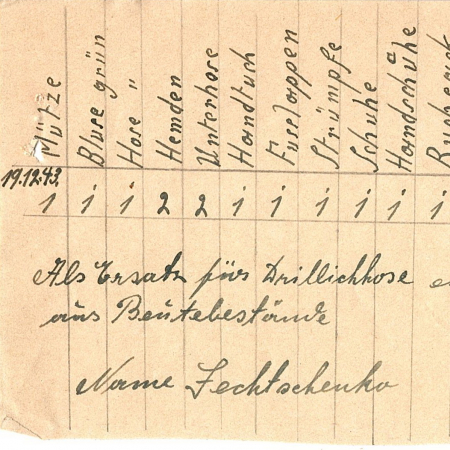 Mütze
Bluse grün
Hose "
Hemden
Unterhose
Handtuch
Fusslappen
Strümpfe
Schuhe
Handschuhe
19.12.43.
1 1 1 2 2 1 1 1 1 1 1
Als Ersatz fürs Drillichhose
aus Beutebestände
Name Fechtschenko